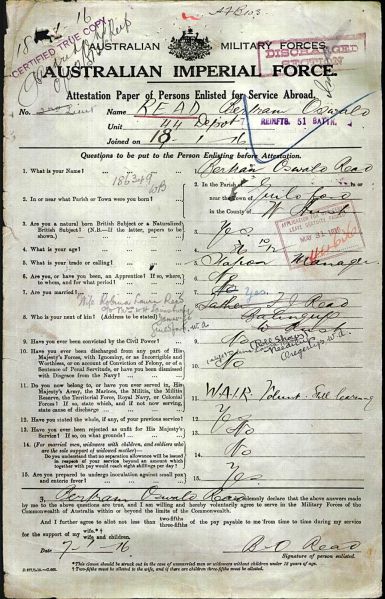 18 1 16
A.F.B 103
CERTIFIED TRUE COPY
AUSTRALIAN MILITARY FORCES.
DISCHARGED
SECTION
AUSTRALIAN IMPERIAL FORCE.
Attestation Paper of Persons Enlisted for Service Abroad.
No. 2nd Lieut Name READ Bertram Oswald
Unit 44 Depot REINFTS. 51 BATTN.
Joined on 18 - 1 - 16
Questions to be put to the Person Enlisting before Attestation.
1. What is your Name? 1. Bertram Oswald Read
2. In or near what Parish or Town were you born? 2. In the Parish of in or
near the town of Guildford
in the County of W Aust
3. Are you a natural born British Subject or a Naturalized British Subject? (N.B.—If the latter, papers to be shown.) 3. Yes
4. What is your age? 4.
5. What is your trade or calling? 5. Station Manager
MAY 31
6. Are you, or have you been, an Apprentice? If so, where, to whom, and for what period? 6. No
7. Are you married? 7. Yes
8. Who is your next of kin? (Address to be stated) 8. Father Read
W Aust
9. Have you ever been convicted by the Civil Power? 9. No
10. Have you ever been discharged from any part of His Majesty's Forces, with Ignominy, or as Incorrigible and Worthless, or on account of Conviction of Felony, or of a Sentence of Penal Servitude, or have you been dismissed with Disgrace from the Navy? 10. No
11. Do you now belong to, or have you ever served in, His Majesty's Army, the Marines, the Militia, the Militia Reserve, the Territorial Force, Royal Navy, or Colonial Forces? If so, state which, and if not now serving, state cause of discharge 11. W.A.I.R.
12. Have you stated the whole, if any, of your previous service? 12. Yes
13. Have you ever been rejected as unfit for His Majesty's Service? If so, on what grounds? 13. No
14. (For married men, widowers with children, and soldiers who are the sole support of widowed mother)—
Do you understand that no separation allowance will be issued in respect of your service beyond an amount which together with pay would reach eight shillings per day? 14. No
15. Are you prepared to undergo inoculation against small pox and enteric fever? 15. Yes
I, Bertram Oswald Read do solemnly declare that the above answers made by me to the above questions are true, and I am willing and hereby voluntarily agree to serve in the Military Forces of the Commonwealth of Australia within or beyond the limits of the Commonwealth.
And I further agree to allot not less than two-fifths three-fifths of the pay payable to me from time to time during my service for the support of my wife wife and children.
Date 7-1-16 B O Read
Signature of person enlisted.
*This clause should be struck out in the case of unmarried men or widowers without children under 18 years of age.
† Two-fifths must be allotted to the wife, and if there are children three-fifths must be allotted.